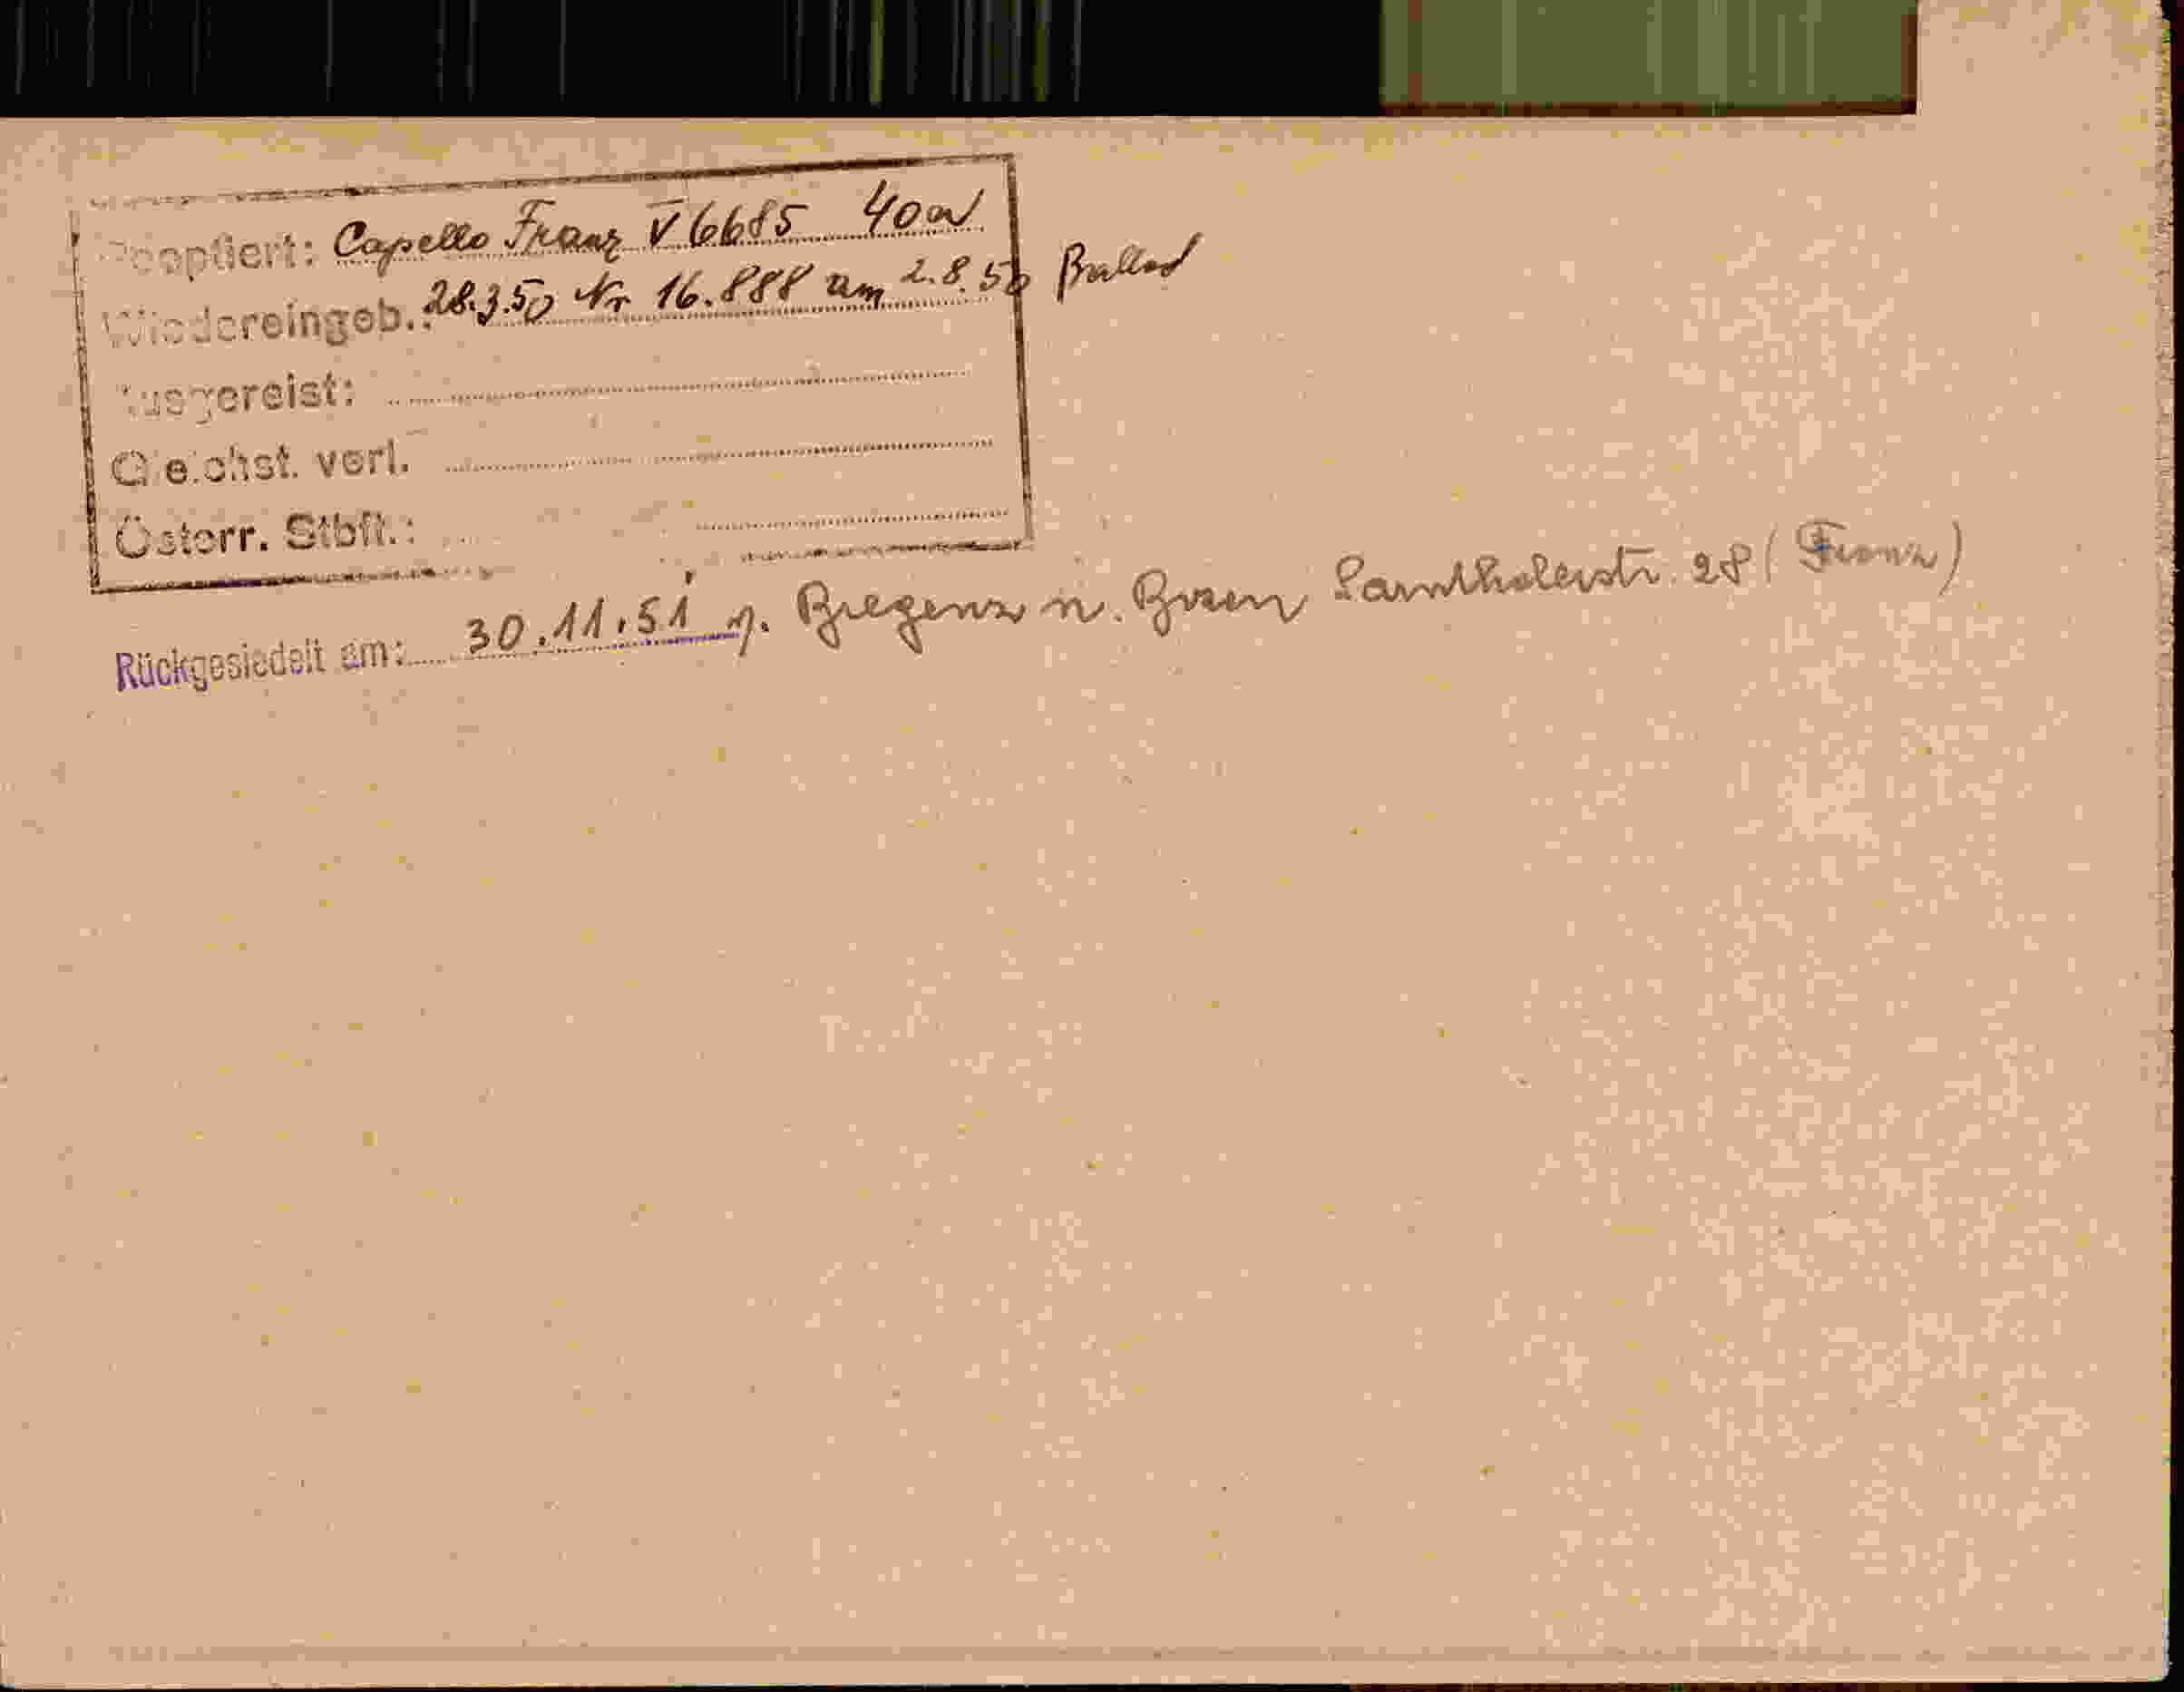 Reoptiert: Capello Franz V 6685 40 av
Wiedereingeb.: 28.3.50 Nr 16.888 am 2.8.50
Ausgereist:
Gleichst. verl.
Österr. Stbft.:
Rückgesiedelt am: 30.11.51 v. Bregenz n. Bozen Sarnthalerstr. 28 (Franz)